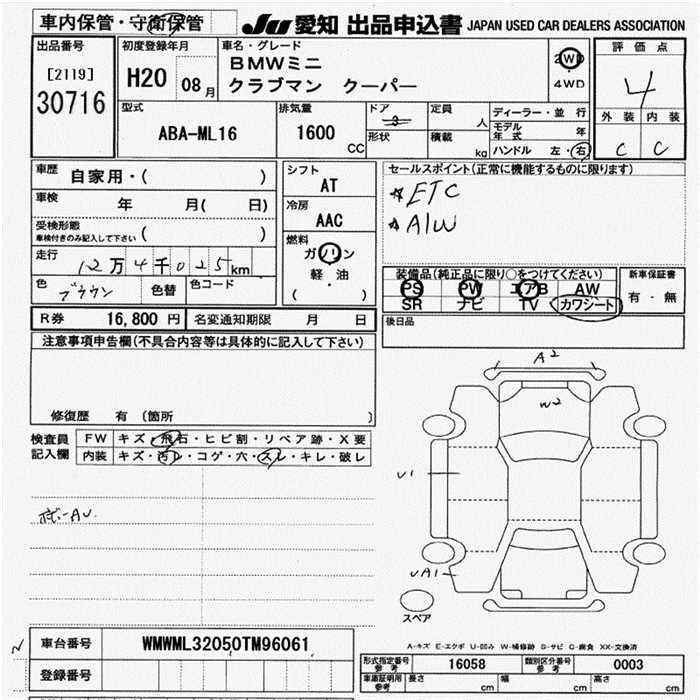 車内保管・守衛保管
JU 愛知 出品申込書 JAPAN USED CAR DEALERS ASSOCIATION
出品番号
[2119]
30716
初度登録年月
H20 08月
車名・グレード
BMWミニ
クラブマン クーパー
2WD
4WD
評価点
4
外装 内装
C C
型式
ABA-ML16
排気量
1600 CC
ドア
3
形状
定員 人
積載 kg
ディーラー・並行
モデル年式 年
ハンドル 左・右
車歴 自家用・( )
車検 年 月( 日)
受検形態
車検付きのみ記入して下さい ( )
走行 12万4千025km
色 ブラウン 色替 色コード
シフト
AT
冷房
AAC
燃料
ガソリン
軽・油
( )
セールスポイント(正常に機能するものに限ります)
☆ETC
☆A/W
装備品(純正品に限り○をつけてください)
PS PW エアB AW
SR ナビ TV カワシート
新車保証書
有・無
後日品
R券 16,800円 名変通知期限 月 日
注意事項申告欄(不具合内容等は具体的に記入して下さい)
修復歴 有 (箇所 )
検査員
記入欄
FW キズ・飛石・ヒビ割・リペア跡・X要
内装 キズ・汚レ・コゲ・穴・スレ・キレ・破レ
ボデーAU.
A2
W2
U1
UA1
スペア
A-キズ E-エクボ U-凹み W-補修跡 S-サビ C-腐食 XX-交換済
車台番号 WMWML32050TM96061
登録番号
形式指定番号
参考
16058
類別区分番号
参考
0003
車庫証明用
参考
長さ cm 幅 cm 高さ cm